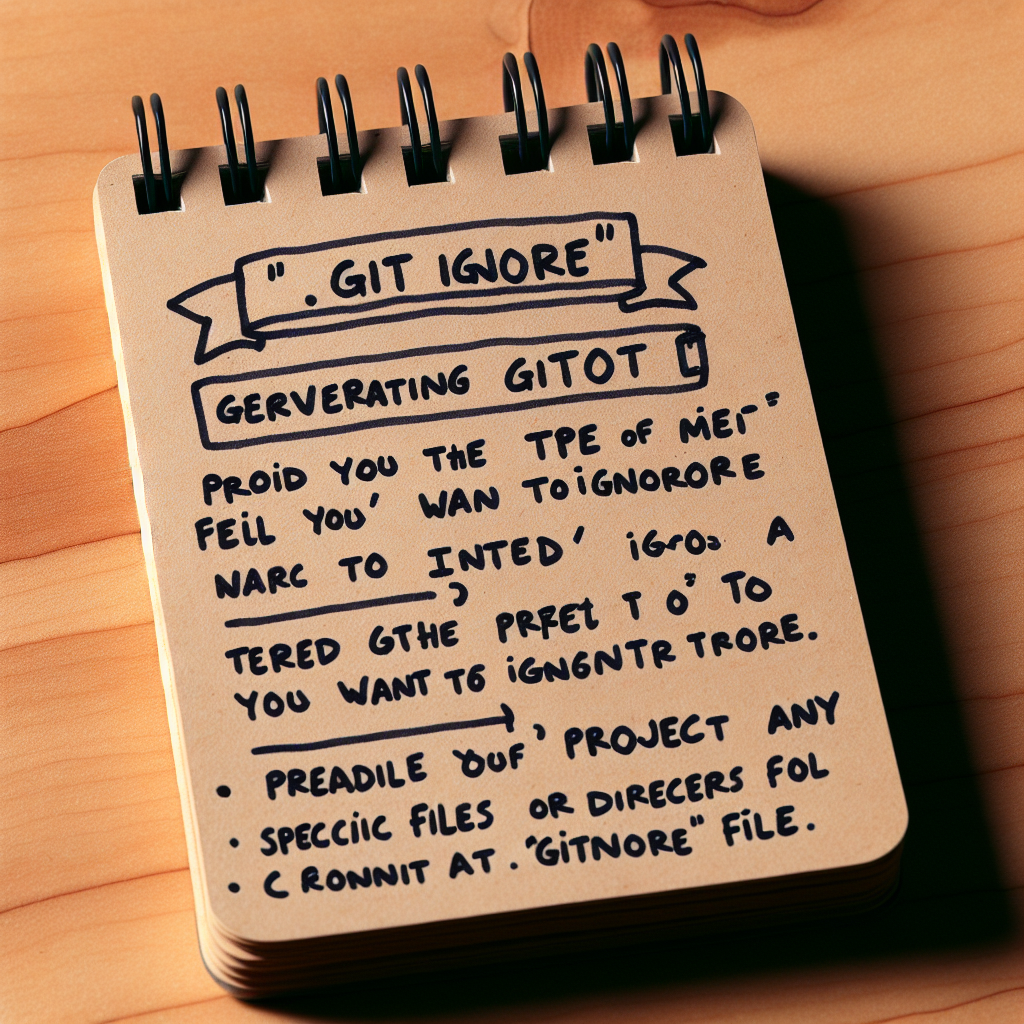 ". GIT IGNORE"
GERVERATING GITOT
PROID YOU THE TPE OF MET"
FEIL YOU' WAN TO iGNORORE
NARC TO INTED' A
TERED GTHE PRFEt T O' TO
YOU WANT TG iGNGNTR TRORE.
• PREADILE YOUF' PROJECT ANY
• SPECCIIC FILES OR DIRECERS FOL
• C RONNIT AT . "GITNORE" FILE.